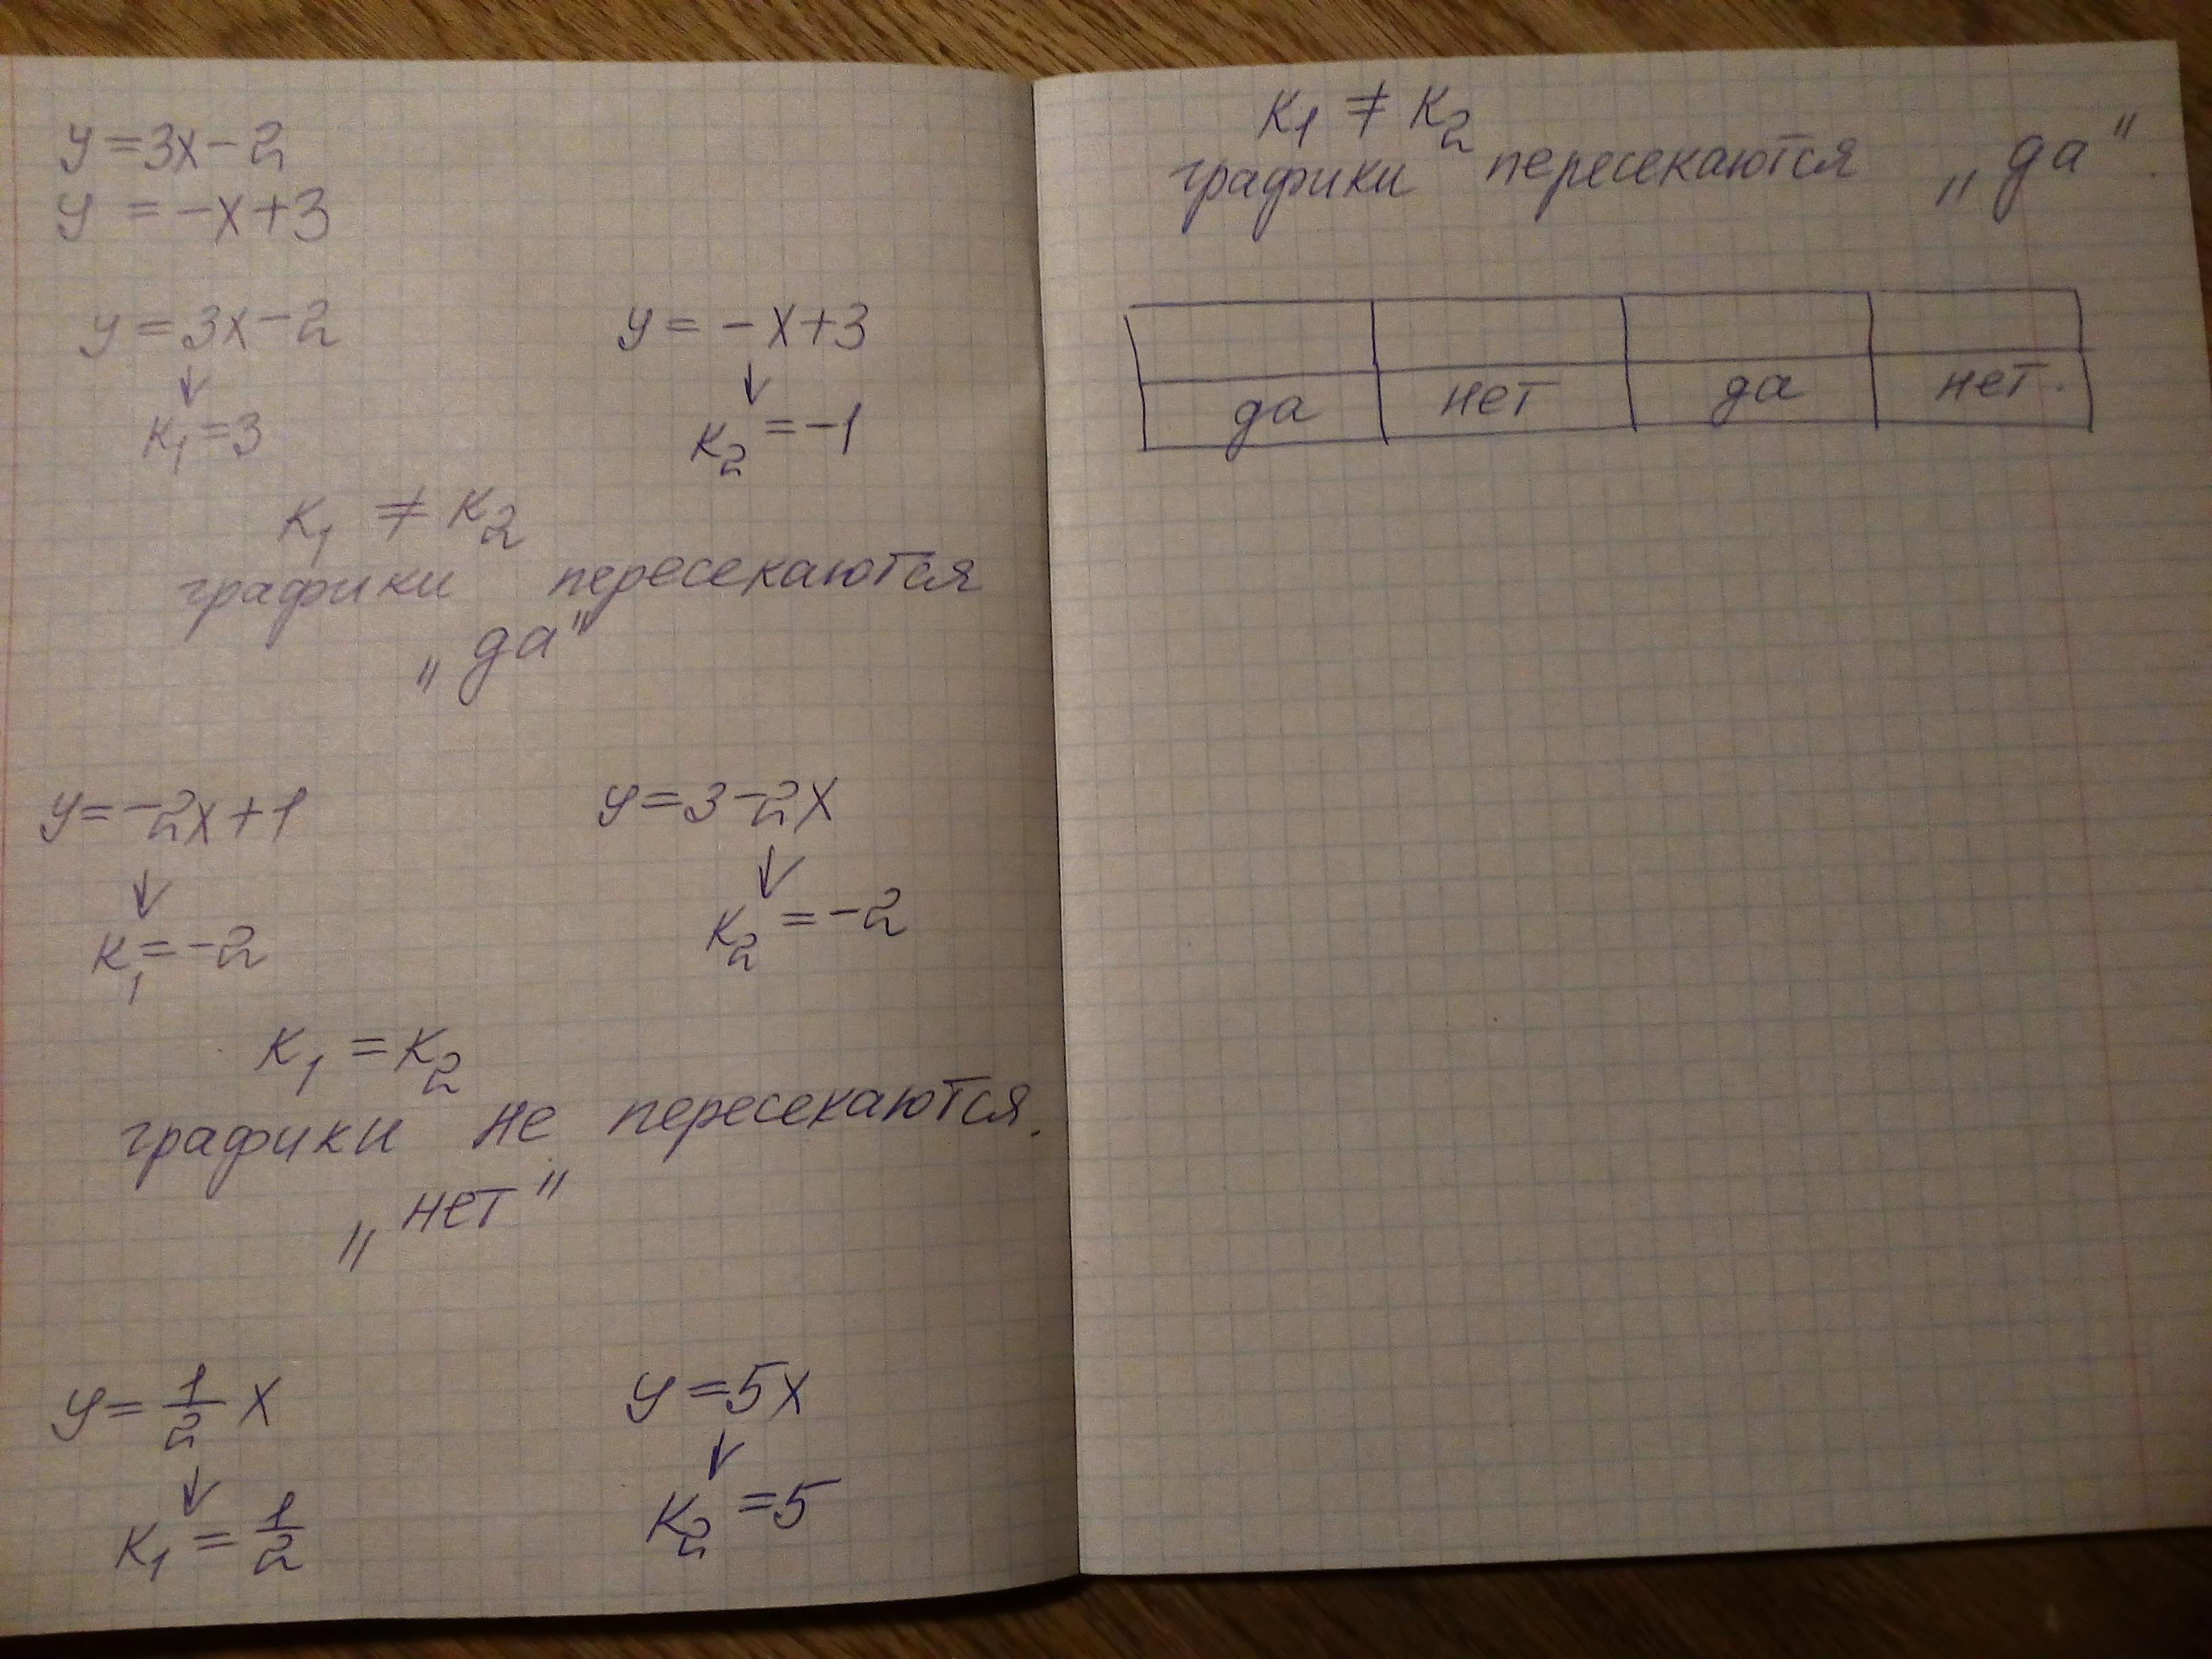 y = 3x - 2
y = -x + 3
y = 3x - 2    y = -x + 3
↓    ↓
к₁ = 3    к₂ = -1
к₁ ≠ к₂
графики пересекаются
„да"
y = -2x + 1    y = 3 - 2x
↓    ↓
к₁ = -2    к₂ = -2
к₁ = к₂
графики не пересекаются.
„нет"
y = 1/2 x    y = 5x
↓    ↓
к₁ = 1/2    к₂ = 5
к₁ ≠ к₂
графики пересекаются „да".
да    нет    да    нет.